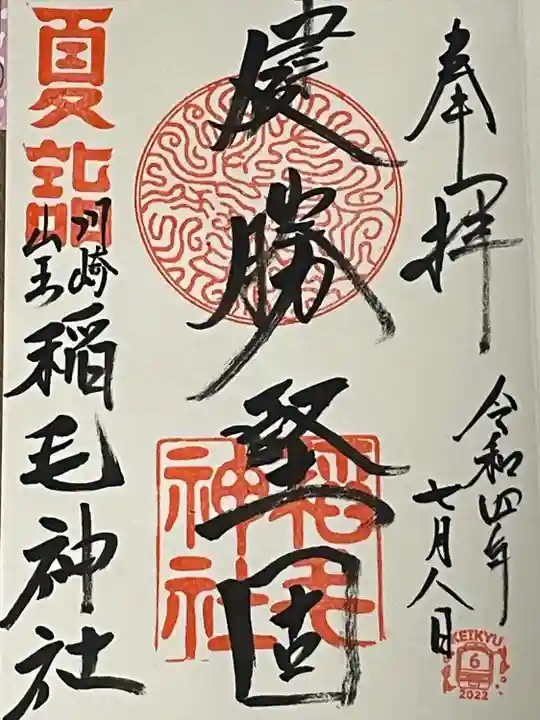 奉拝
令和四年
七月八日
慶勝堅固
夏詣
川崎
山王
稲毛神社
稲毛
神社
KEIKYU
6
2022